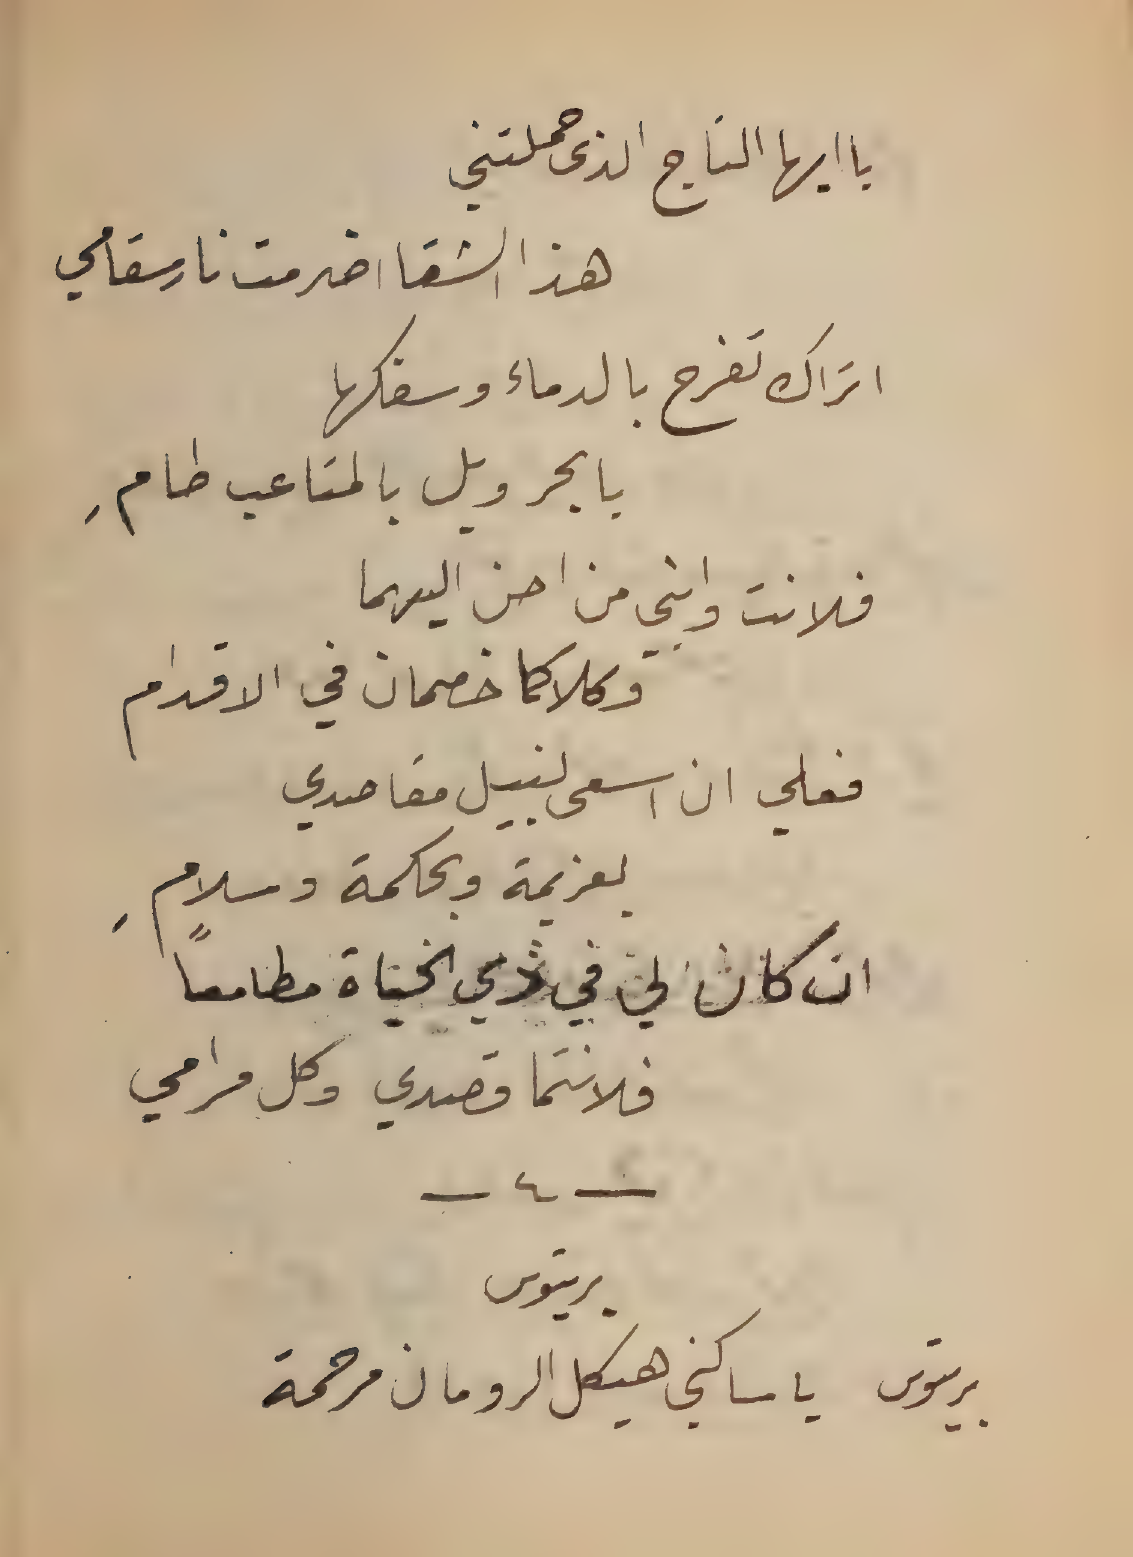 يا ايها التاج الذى حملتني
هذا الشقا اضرمت نار سقامي
اتراك تفرح بالدماء وسفكها
يا بحر ويل بالمتاعب طامِ
فلانت وابني من احن اليهما
وكلاكما خصمان في الاقدام
فعلي ان اسعى لنيل مقاصدي
بعزيمة وبحكمة وسلامِ
ان كان لي في ذي الحياة مطامعاً
فلانتما قصدي وكل مرامي
— ٤ —
بريتوس
بريتوس يا ساكني هيكل الرومان مرحمة